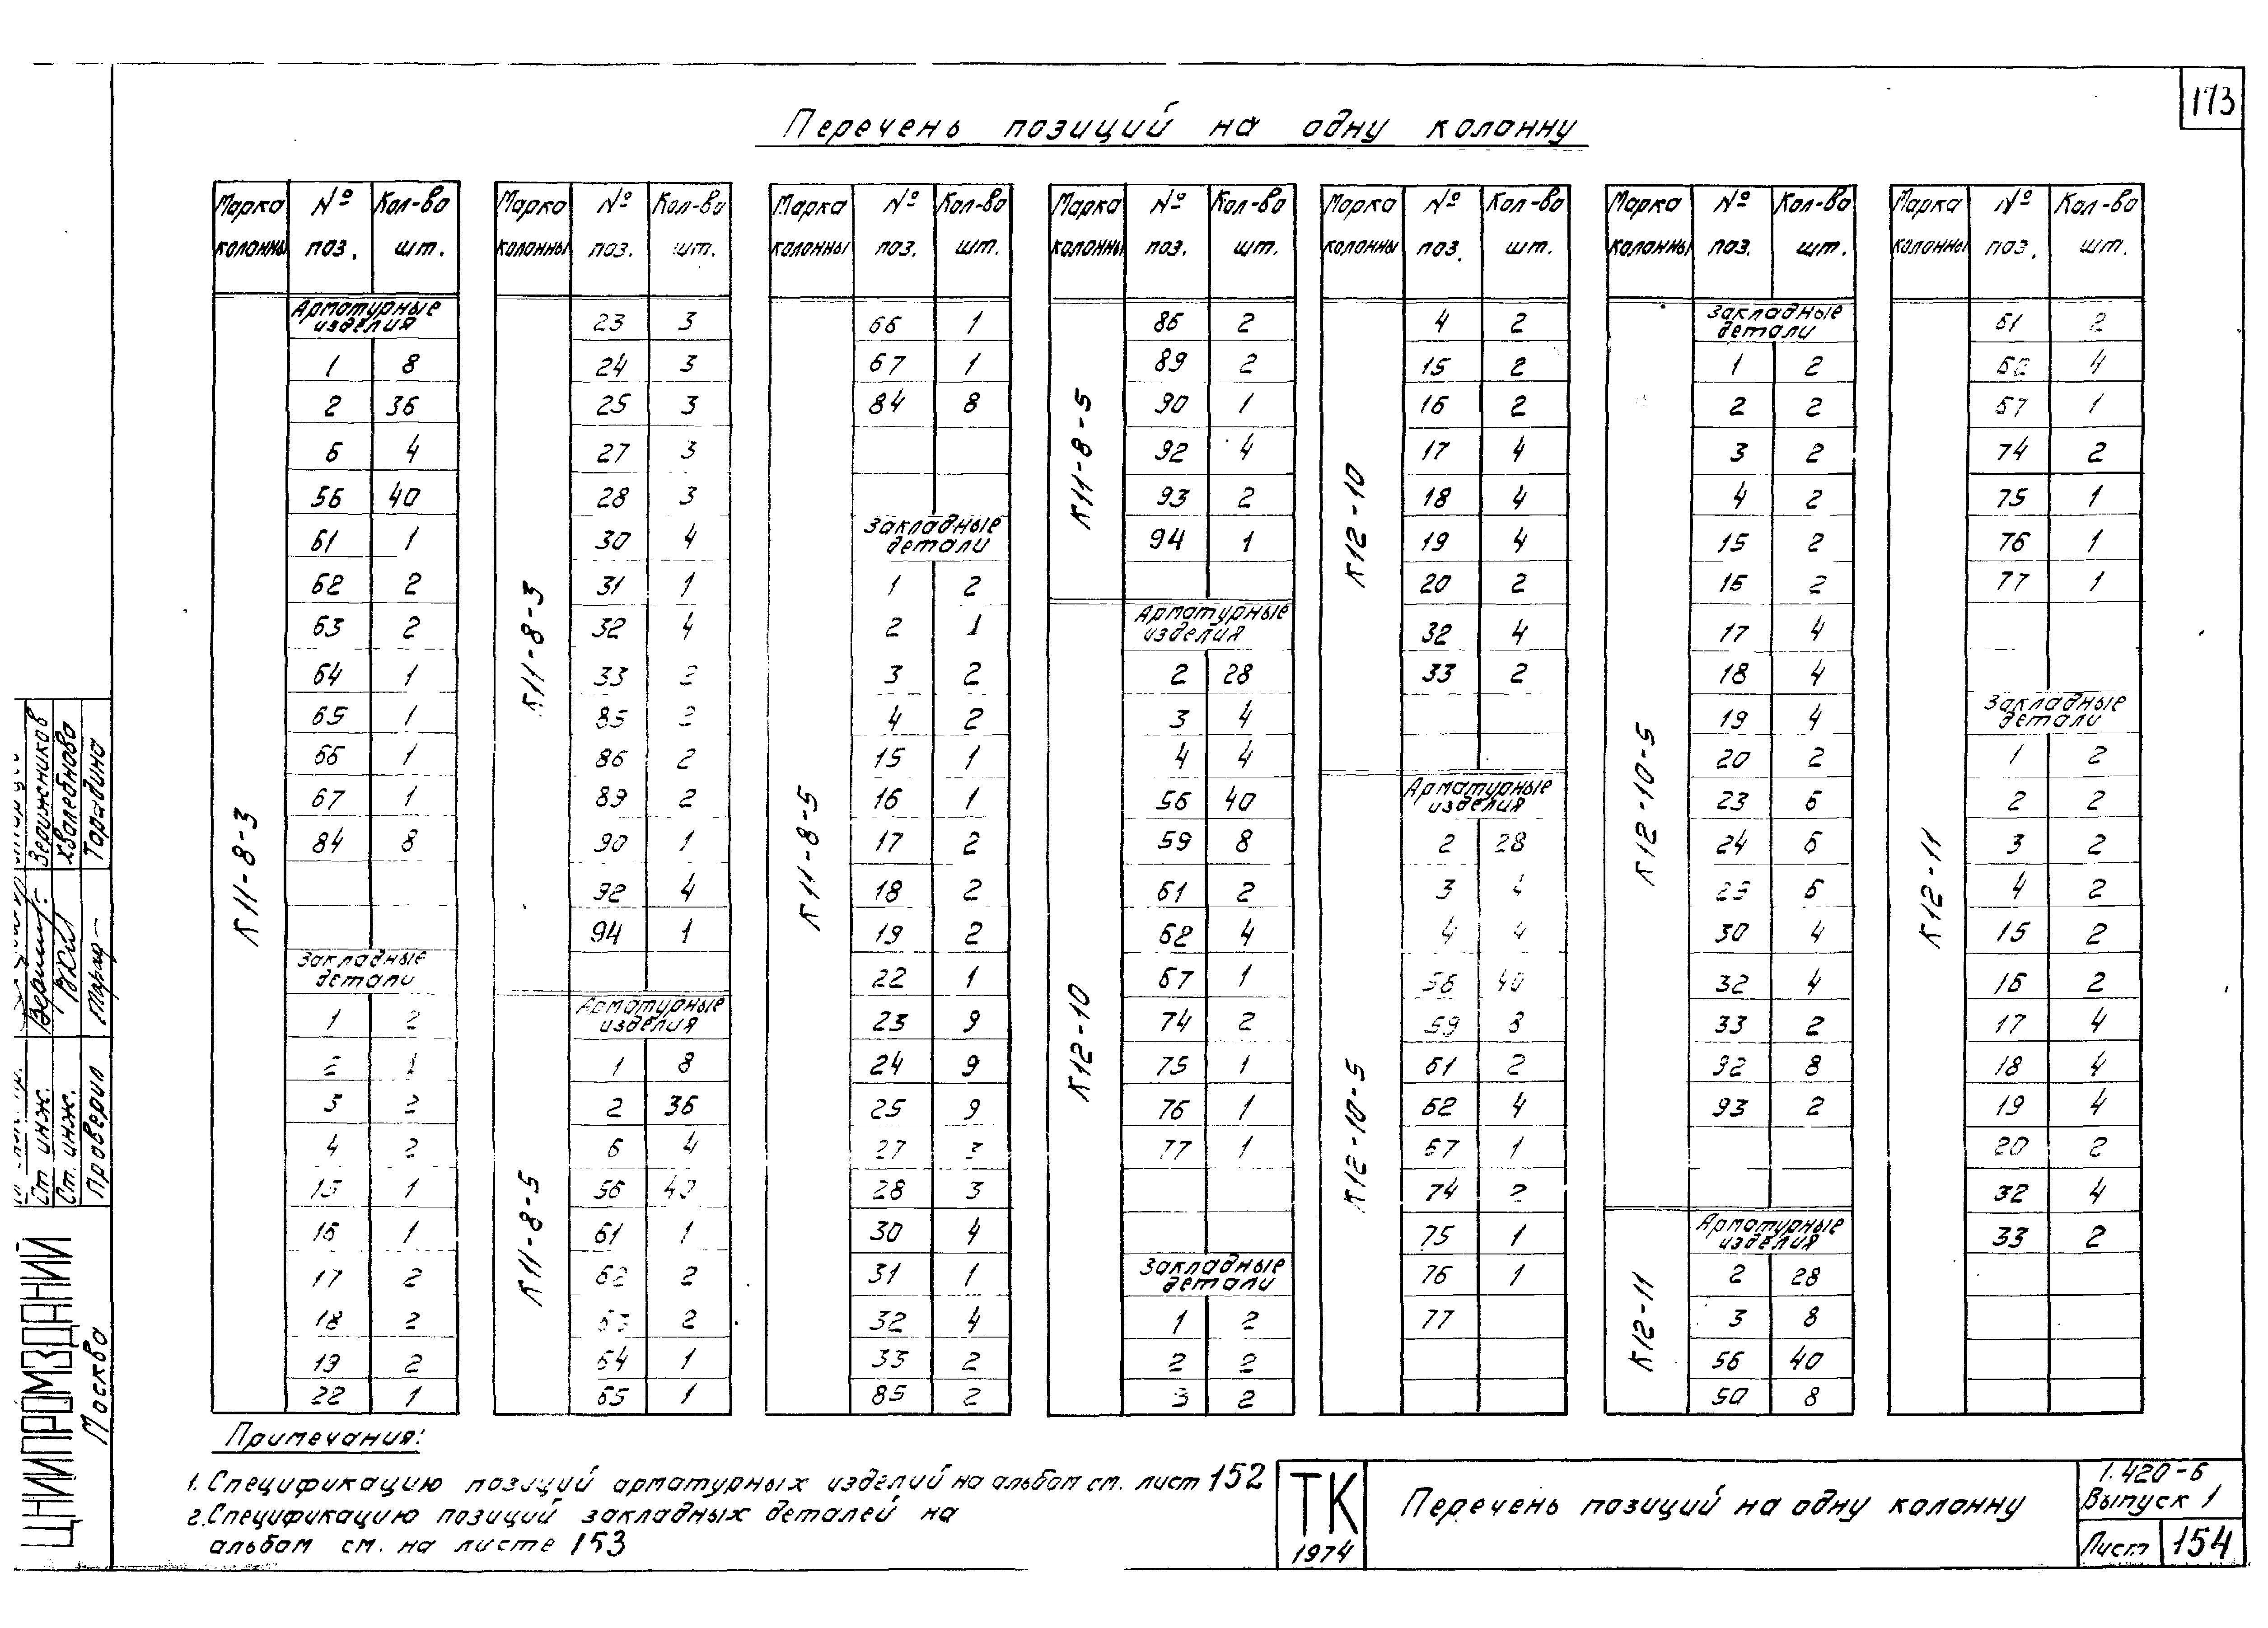 173
Перечень позиций на одну колонну
Марка колонны № поз. Кол-во шт.
К11-8-3
Арматурные изделия
1 8
2 36
6 4
56 40
61 1
62 2
63 2
64 1
65 1
66 1
67 1
84 8
Закладные детали
1 2
2 1
3 2
4 2
15 1
16 1
17 2
18 2
19 2
22 1
Марка колонны № поз. Кол-во шт.
К11-8-3
23 3
24 3
25 3
27 3
28 3
30 4
31 1
32 4
33 2
85 2
86 2
89 2
90 1
92 4
94 1
К11-8-5
Арматурные изделия
1 8
2 36
6 4
56 40
61 1
62 2
63 2
64 1
65 1
Марка колонны № поз. Кол-во шт.
К11-8-5
66 1
67 1
84 8
Закладные детали
1 2
2 1
3 2
4 2
15 1
16 1
17 2
18 2
19 2
22 1
23 9
24 9
25 9
27 3
28 3
30 4
31 1
32 4
33 2
85 2
Марка колонны № поз. Кол-во шт.
К11-8-5
86 2
89 2
90 1
92 4
93 2
94 1
К12-10
Арматурные изделия
2 28
3 4
4 4
56 40
59 8
61 2
62 4
67 1
74 2
75 1
76 1
77 1
Закладные детали
1 2
2 2
3 2
Марка колонны № поз. Кол-во шт.
К12-10
4 2
15 2
16 2
17 4
18 4
19 4
20 2
32 4
33 2
К12-10-5
Арматурные изделия
2 28
3 4
4 4
56 40
59 8
61 2
62 4
67 1
74 2
75 1
76 1
77
Марка колонны № поз. Кол-во шт.
К12-10-5
Закладные детали
1 2
2 2
3 2
4 2
15 2
16 2
17 4
18 4
19 4
20 2
23 6
24 6
25 6
30 4
32 4
33 2
92 8
93 2
К12-11
Арматурные изделия
2 28
3 8
56 40
50 8
Марка колонны № поз. Кол-во шт.
К12-11
61 2
62 4
67 1
74 2
75 1
76 1
77 1
Закладные детали
1 2
2 2
3 2
4 2
15 2
16 2
17 4
18 4
19 4
20 2
32 4
33 2
Примечания:
1. Спецификацию позиций арматурных изделий на альбом см. лист 152
2. Спецификацию позиций закладных деталей на
альбом см. на листе 153
ТК
1974
Перечень позиций на одну колонну
1.420-6
Выпуск 1
Лист 154
ЦНИИПРОМЗДАНИЙ
Москва
Ст инж.
Ст. инж. Хвалебнова
Проверил Тарадина